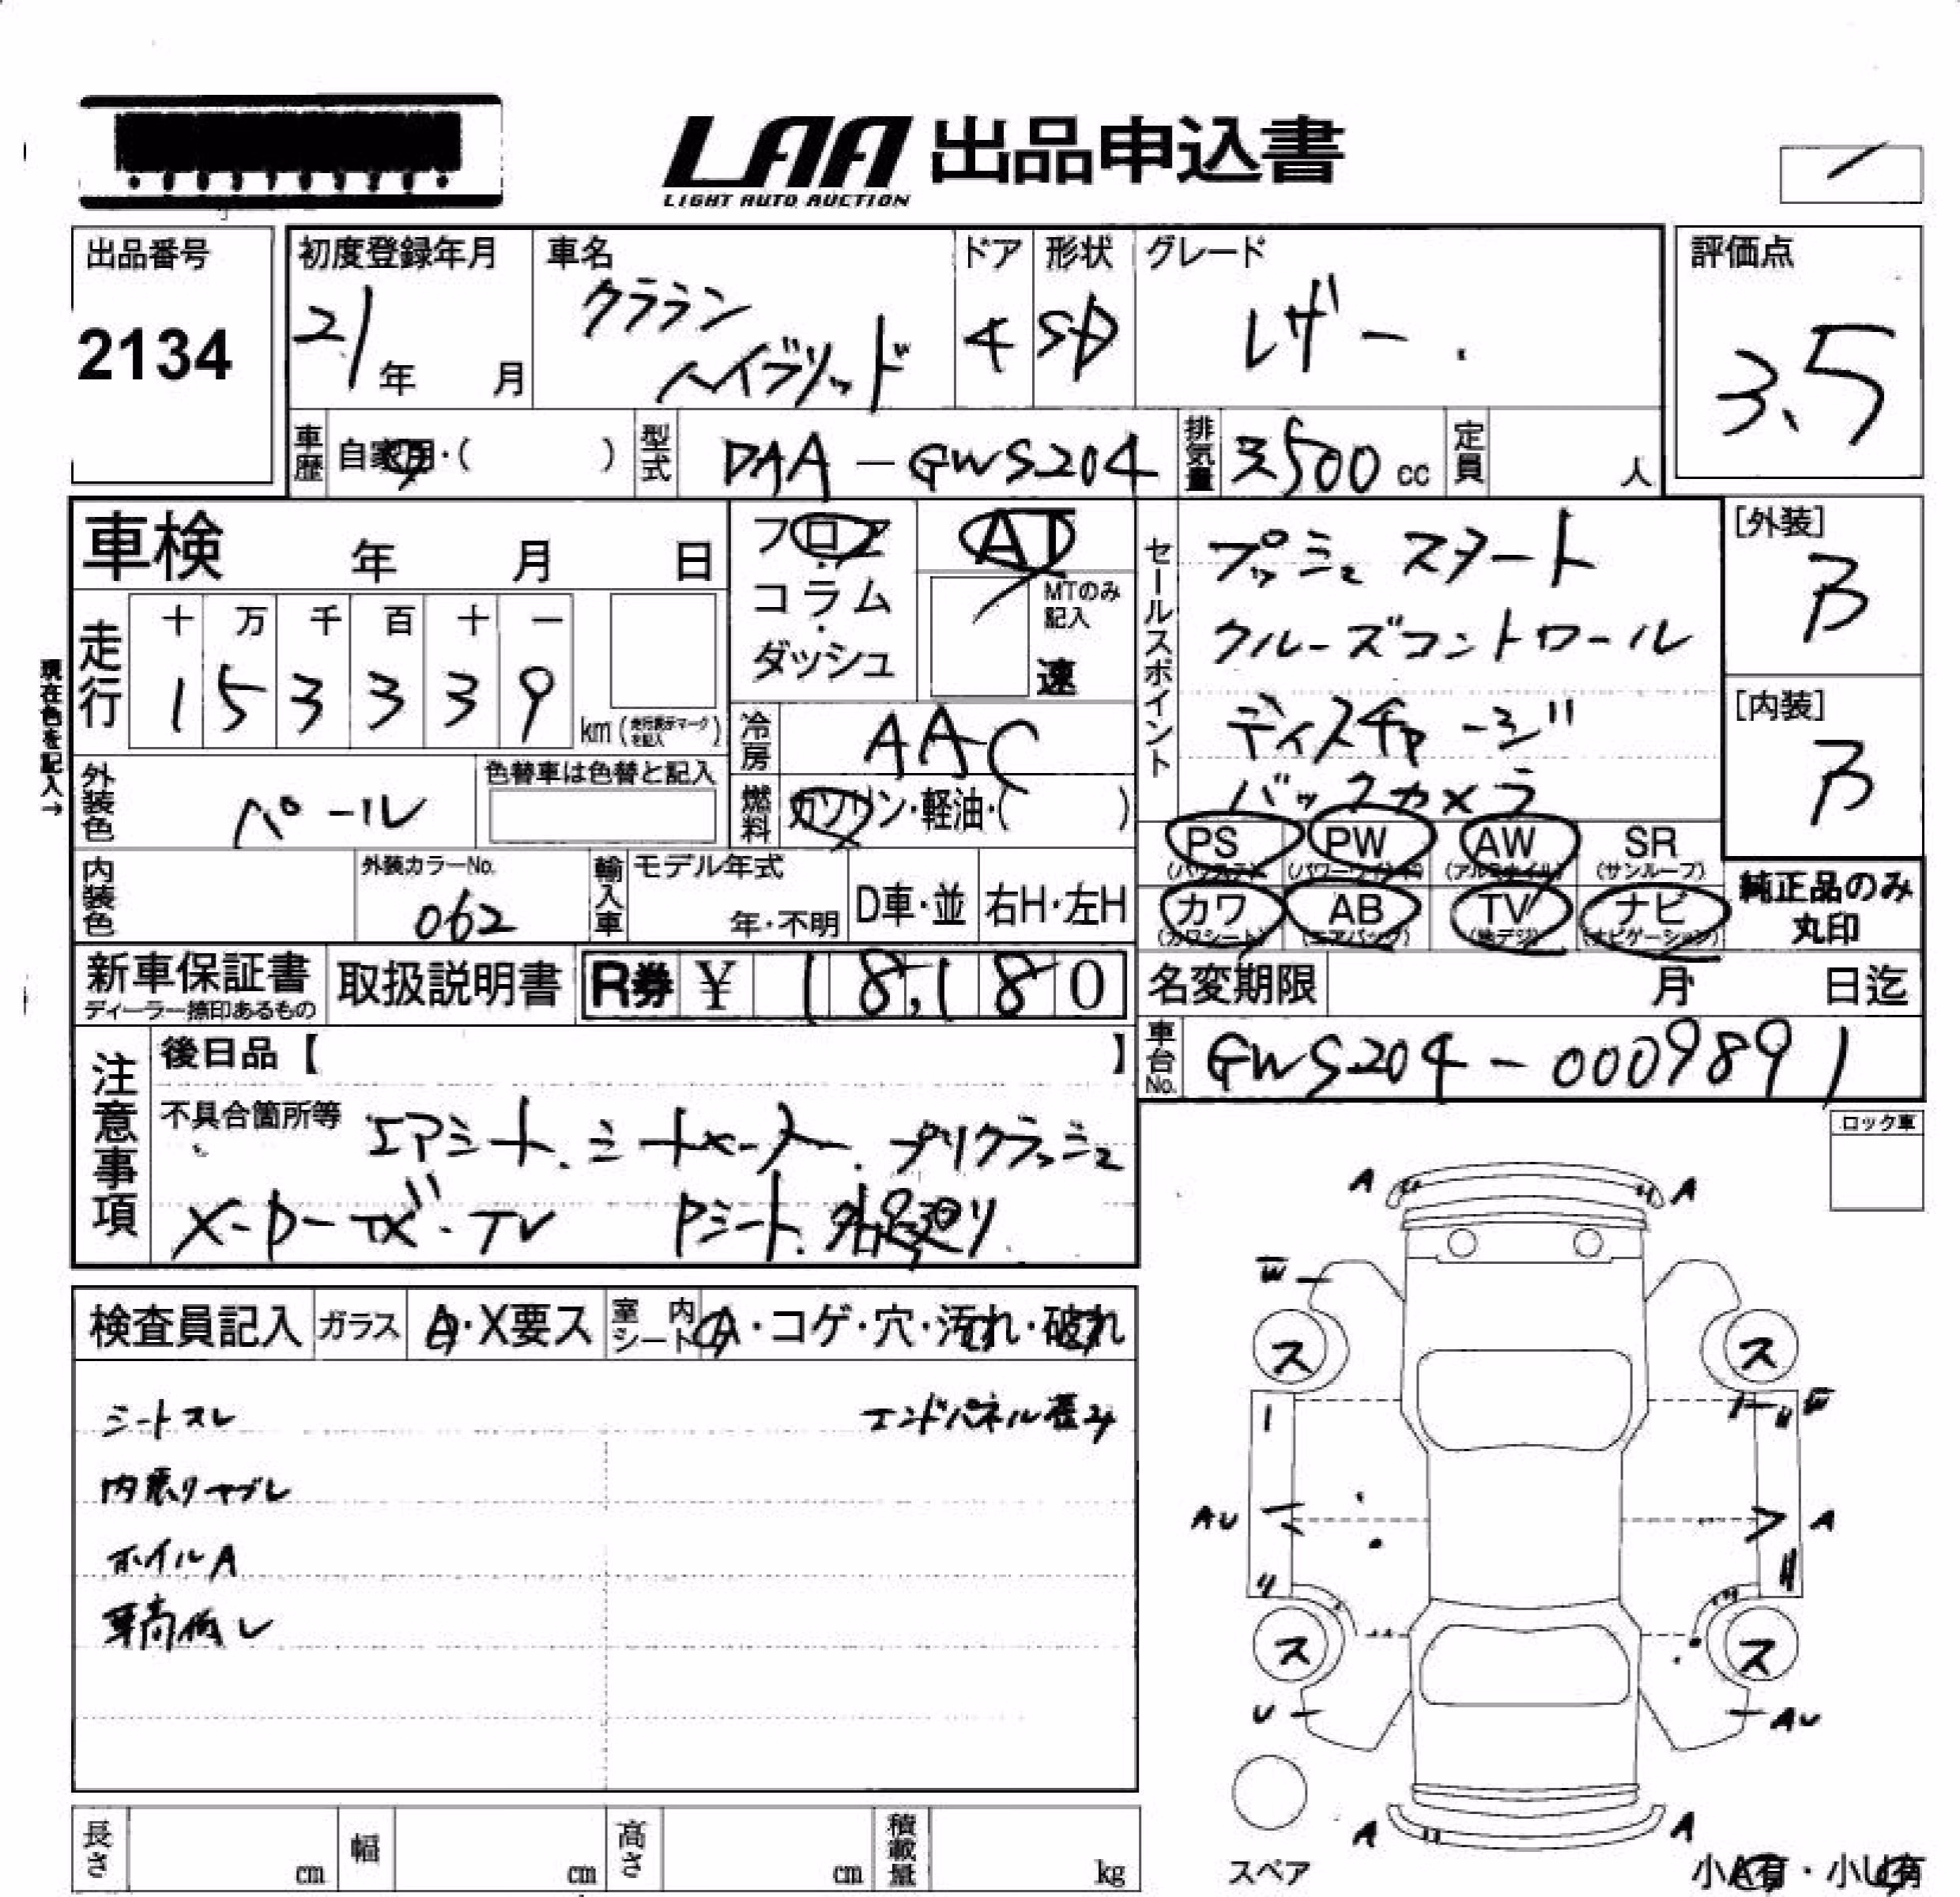 LAA 出品申込書
LIGHT AUTO AUCTION
出品番号
2134
初度登録年月
21年 月
車名
クラウン
ハイブリッド
ドア
4
形状
SD
グレード
レザー
評価点
3.5
車歴
自家用・( )
型式
DAA-GWS204
排気量
3500cc
定員
人
車検 年 月 日
フロア
コラム
ダッシュ
AT
MTのみ記入
速
走行
十 万 千 百 十 一
1 5 3 3 3 9
km(走行表示マークを記入)
現在色を記入→
冷房
AAC
外装色
パール
色替車は色替と記入
燃料
ガソリン・軽油・( )
内装色
外装カラーNo.
062
輸入車
モデル年式
年・不明
D車・並
右H・左H
新車保証書
ディーラー捺印あるもの
取扱説明書
R券 ¥ 18,180
セールスポイント
プッシュスタート
クルーズコントロール
ディスチャージ
バックカメラ
[外装]
B
[内装]
B
PS
(パワステ)
PW
(パワーウィンド)
AW
(アルミホイル)
SR
(サンルーフ)
カワ
(カワシート)
AB
(エアバッグ)
TV
(地デジ)
ナビ
(ナビゲーション)
純正品のみ
丸印
名変期限 月 日迄
車台No.
GWS204-0009891
注意事項
後日品【 】
不具合箇所等 エアシート、シートヒーター、プリクラッシュ
Pシート
ロック車
検査員記入
ガラス
A・X要ス
室内シート
A・コゲ・穴・汚れ・破れ
シートスレ
エンドパネル歪み
内張りヤブレ
ホイルA
車高低し
A A
W
ス ス
W
AU A
ス ス
U AU
A A
スペア
小A有・小U有
長さ cm
幅 cm
高さ cm
積載量 kg